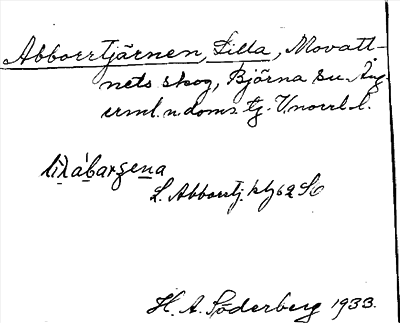 Abborrtjärnen, Lilla, Movatt-
nets skog, Björna sn. Ång-
erml. n. doms. tg. V.norrl. l.
lìlábarʒena
L. Abborrtj. kbl 62 S6
H. A. Söderberg 1933.